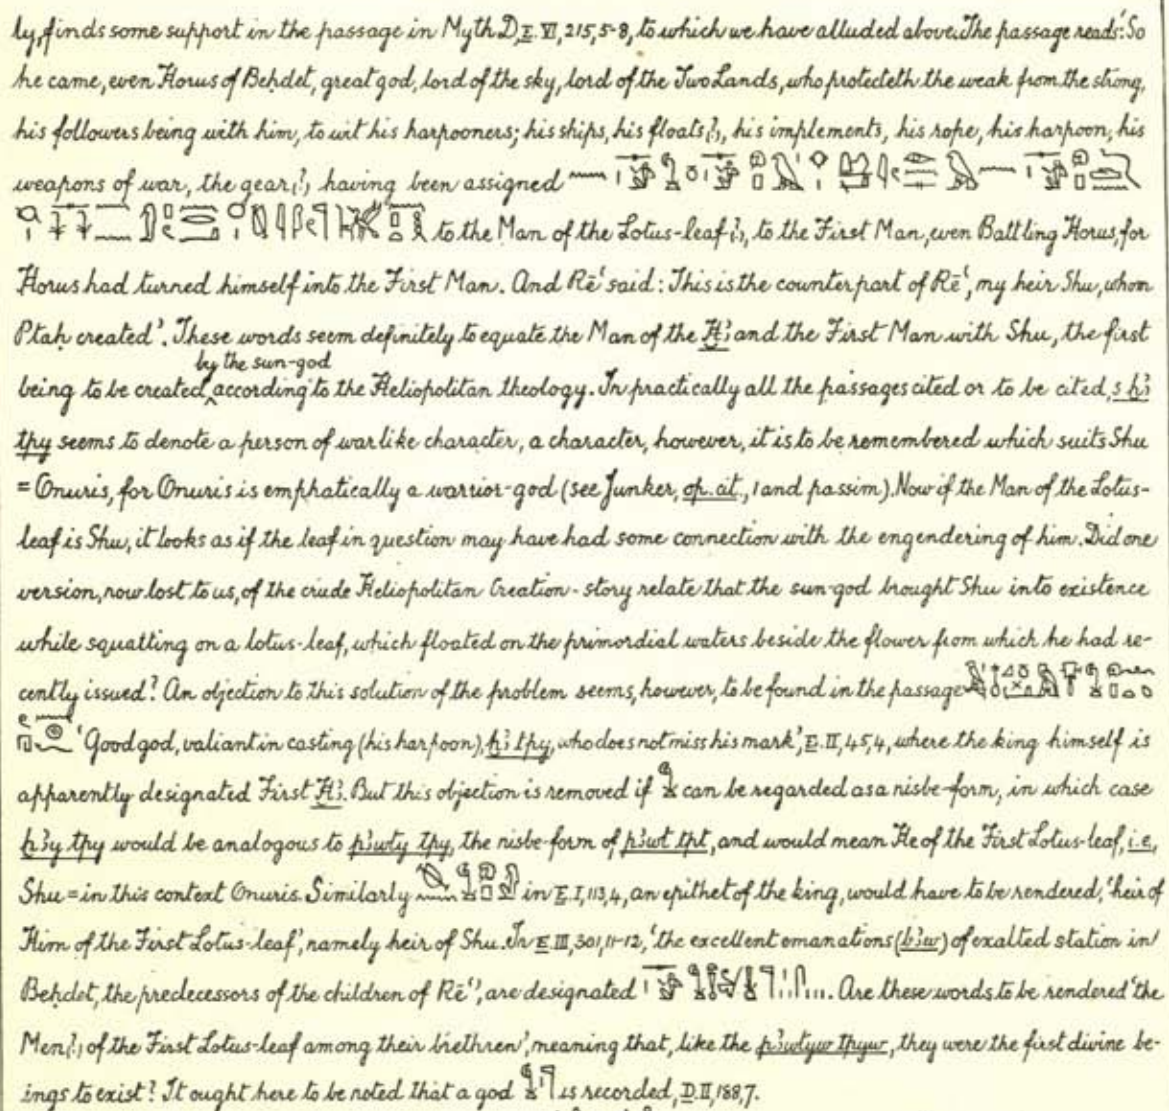 ly, finds some support in the passage in Myth D, E. VI, 215, 5-8, to which we have alluded above. The passage reads: 'So
he came, even Horus of Beḥdet, great god, lord of the sky, lord of the Two Lands, who protecteth the weak from the strong,
his followers being with him, to wit his harpooners; his ships, his floats(?), his implements, his rope, his harpoon, his
weapons of war, the gear(?) having been assigned
to the Man of the Lotus-leaf(?), to the First Man, even Battling Horus, for
Horus had turned himself into the First Man. And Rēʿ said: This is the counterpart of Rēʿ, my heir Shu, whom
Ptaḥ created'. These words seem definitely to equate the Man of the Ḫꜣ and the First Man with Shu, the first
by the sun-god
being to be created ‸ according to the Heliopolitan theology. In practically all the passages cited or to be cited, s ḫꜣ
tpy seems to denote a person of warlike character, a character, however, it is to be remembered which suits Shu
= Onuris, for Onuris is emphatically a warrior-god (see Junker, op. cit., 1 and passim). Now if the Man of the Lotus-
leaf is Shu, it looks as if the leaf in question may have had some connection with the engendering of him. Did one
version, now lost to us, of the crude Heliopolitan Creation-story relate that the sun-god brought Shu into existence
while squatting on a lotus-leaf, which floated on the primordial waters beside the flower from which he had re-
cently issued? An objection to this solution of the problem seems, however, to be found in the passage
'Good god, valiant in casting (his harpoon), ḫꜣ tpy, who does not miss his mark', E. II, 45, 4, where the king himself is
apparently designated First Ḫꜣ. But this objection is removed if can be regarded as a nisbe-form, in which case
ḫꜣy tpy would be analogous to pꜣwty tpy, the nisbe-form of pꜣwt tpt, and would mean He of the First Lotus-leaf, i.e.,
Shu = in this context Onuris. Similarly in E. I, 113, 4, an epithet of the king, would have to be rendered, 'heir of
Him of the First Lotus-leaf', namely heir of Shu. In E. III, 301, 11-12, 'the excellent emanations (bꜣw) of exalted station in
Beḥdet, the predecessors of the children of Rēʿ', are designated . Are these words to be rendered 'the
Men(?) of the First Lotus-leaf among their brethren', meaning that, like the pꜣwtyw tpyw, they were the first divine be-
ings to exist? It ought here to be noted that a god is recorded, D. II, 188, 7.